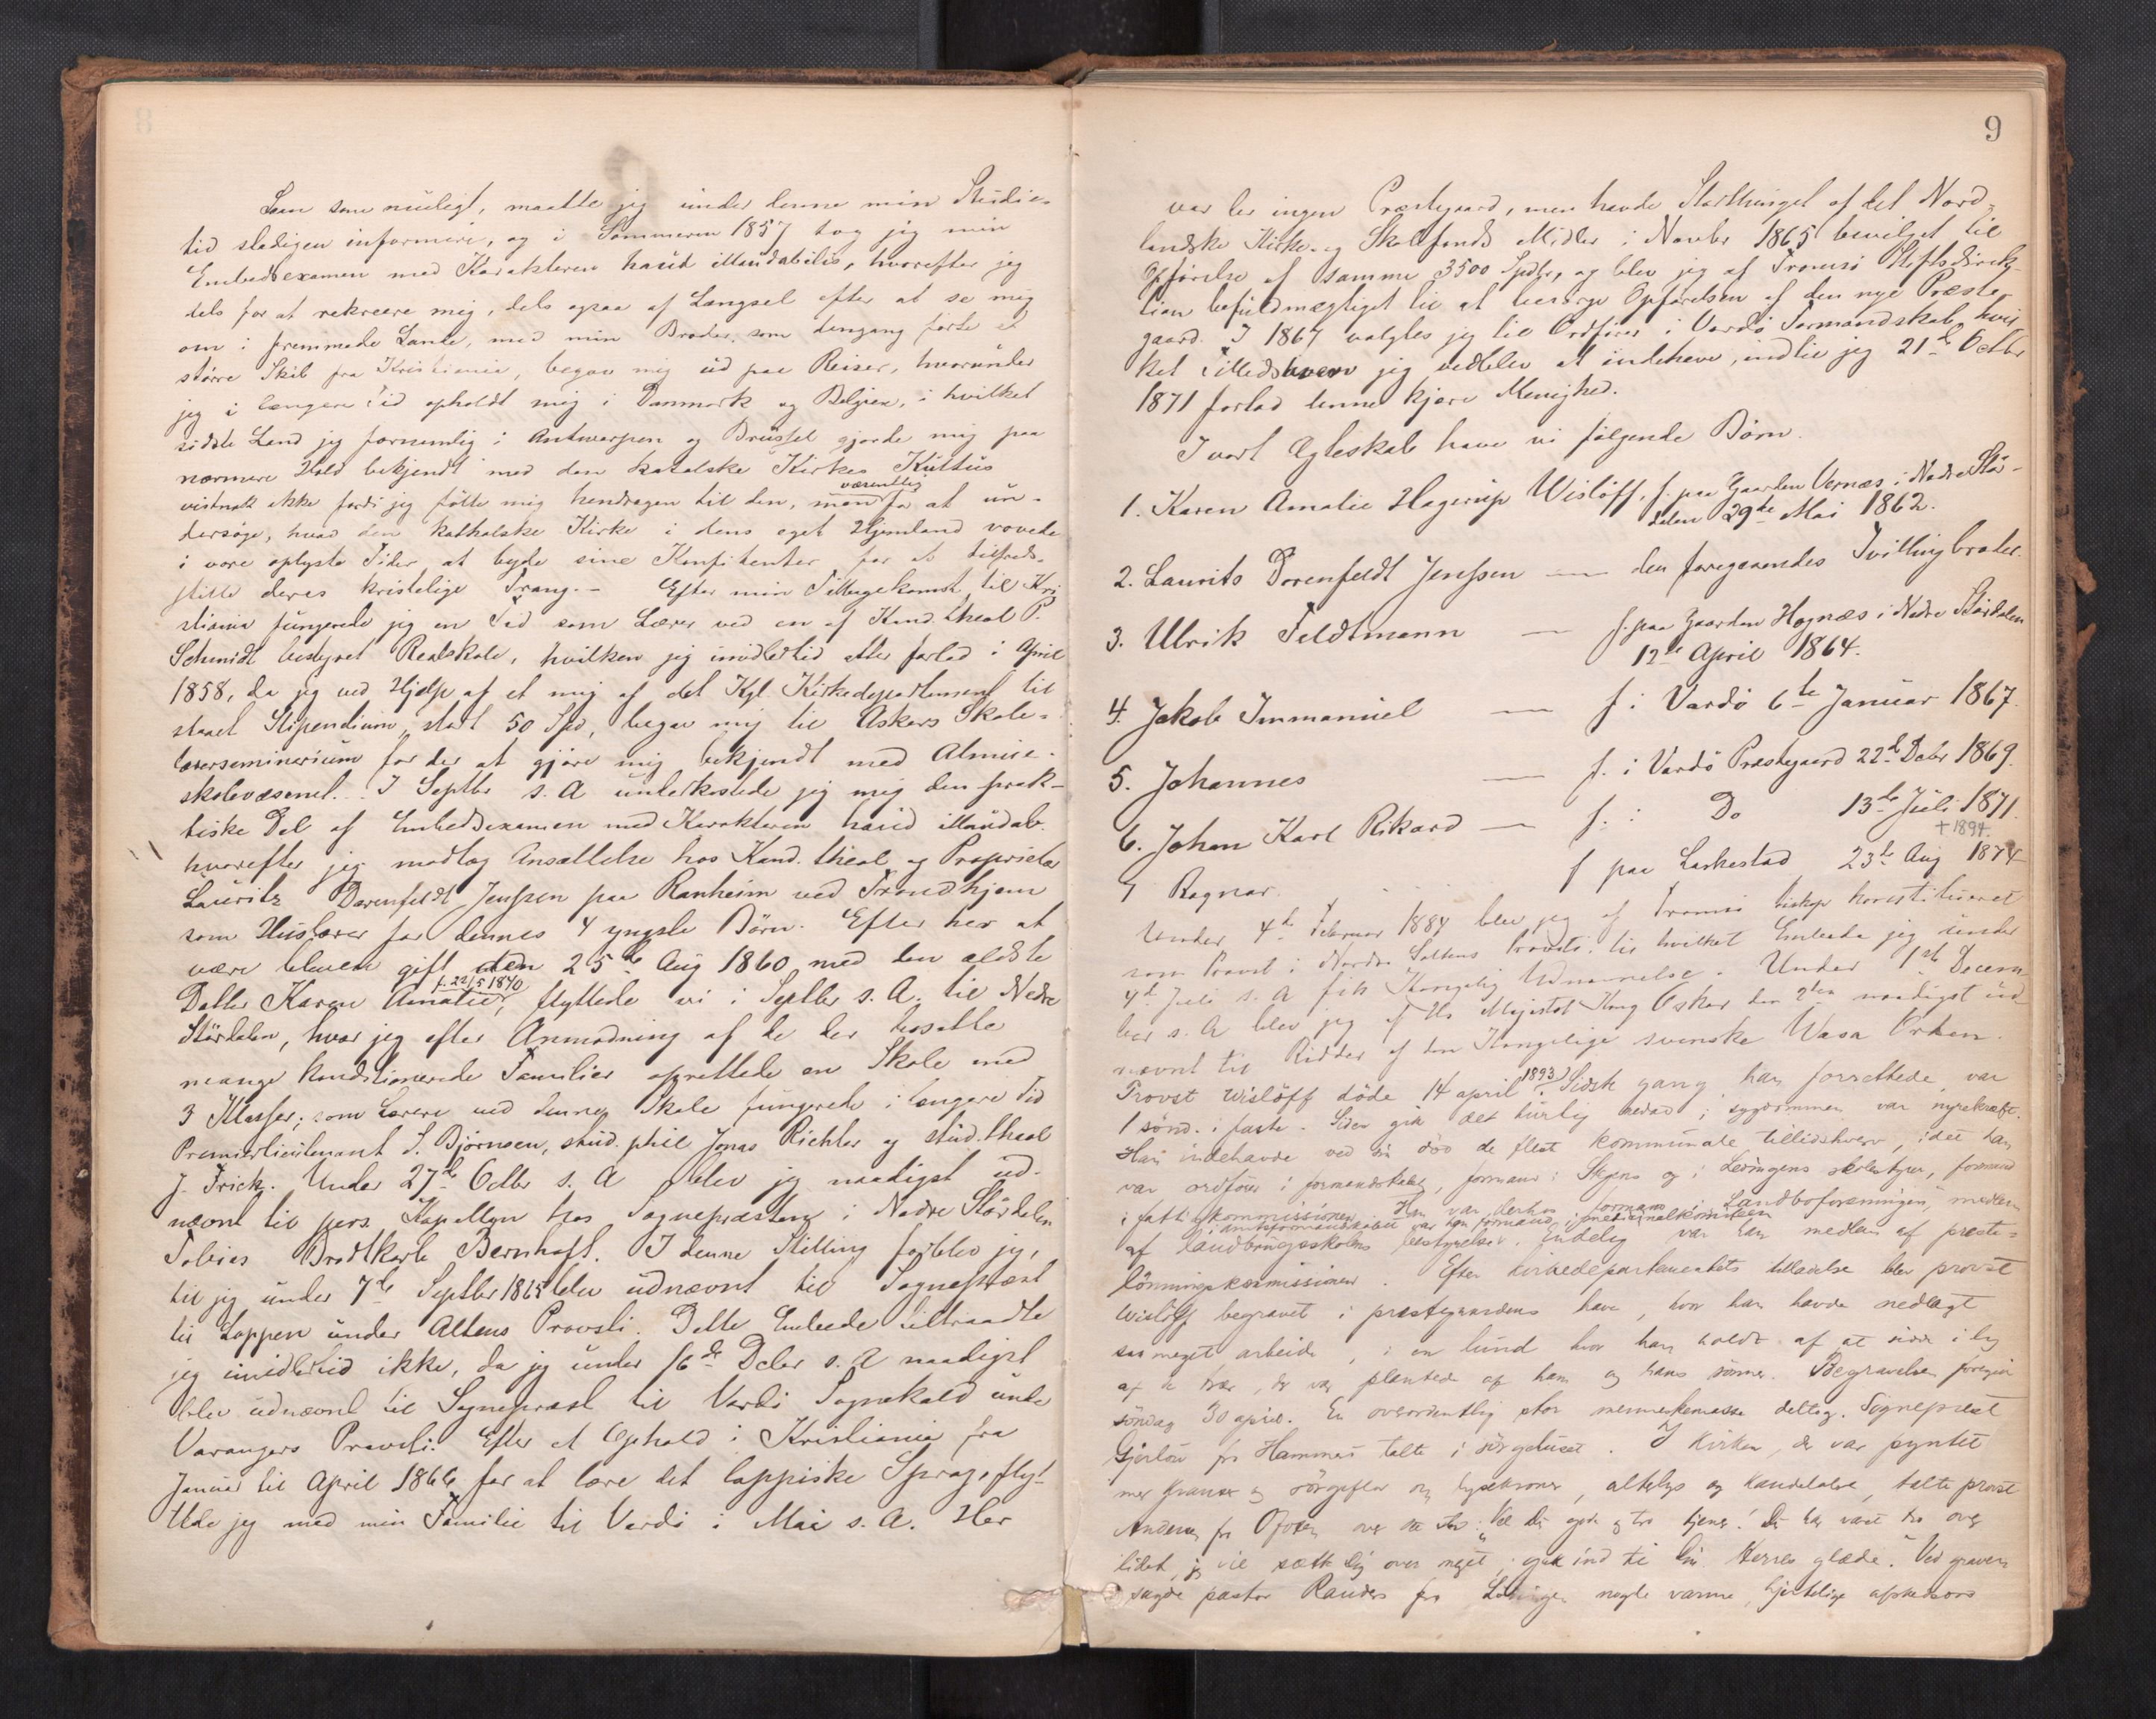 8
Som som muligt, maatte jeg under denne min Studie-
tid stadigen informere, og i Sommeren 1857 tog jeg min
Embedsexamen med Karakteren haud illaudabilis, hvorefter jeg
dels for at rekreere mig, dels ogsaa af Længsel efter at se mig
om i fremmede Lande, med min Broder, som dengang førte et
større Skib fra Kristiania, begav mig ud paa Reiser, hvorunder
jeg i længere Tid opholdt mig i Danmark og Belgien, i hvilket
sidste Land jeg fornemlig i Antwerpen og Brüssel gjorde mig paa
nærmere Hold bekjendt med den katolske Kirkes Kultus
vistnok ikke fordi jeg følte mig hendragen til den, men væsentlig for at un-
dersøge, hvad den katholske Kirke i dens eget Hjemland vovede
i vore oplyste Tider at byde sine Konfitenter for at tilfreds-
stille deres kristelige Trang. – Efter min Tilbagekomst til Kri
stiania fungerede jeg en Tid som Lærer ved en af Kand. theol P.
Schmidt bestyret Realskole, hvilken jeg imidlertid atter forlod i April
1858, da jeg ved Hjelp af et mig af det Kgl. Kirkedepartement til
staaet Stipendium, stort 50 Spd, begav mig til Askers Skole-
lærerseminarium for der at gjøre mig bekjendt med Almue-
skolevæsenet. I Septbr s. A underkastede jeg mig den prak-
tiske Del af Embedsexamen med Karakteren haud illaudab.
hvorefter jeg modtog Ansættelse hos Kand. theol. og Proprietær
Lauritz Dorenfeldt Jenssen paa Ranheim ved Trondhjem
som Huslærer for dennes 4 yngste Børn. Efter her at
være bleven gift den 25de Aug 1860 med den ældste
Datter Karen Amalie, f. 22/5 1840 flyttede vi i Septbr s. A. til Nedre
Stördalen, hvor jeg efter Anmodning af de der bosatte
mange konditionerede Familier oprettede en Skole med
3 Klasser; som Lærere ved denne Skole fungerede i længere Tid
Premierlieutenant S. Björnsen, stud. phil Jonas Richter og stud. theol
J. Frich. Under 27de Octbr s. A blev jeg naadigst ud-
nævnt til pers. Kapellan hos Sognepræsten i Nedre Stördalen
Tobias Brodtkorb Bernhoft. I denne Stilling forblev jeg,
til jeg under 7de Septbr 1865 blev udnævnt til Sognepræst
til Loppen under Altens Provsti. Dette Embede tiltraadte
jeg imidlertid ikke, da jeg under 16de Decbr s. A naadigst
blev udnævnt til Sognepræst til Vardö Sognekald under
Varangers Provsti. Efter et Ophold i Kristiania fra
Januar til April 1866 for at lære det lappiske Sprog, flyt-
tede jeg med min Familie til Vardö i Mai s. A. Her
9
var der ingen Præstegaard, men havde Storthinget af det Nord-
landske Kirke- og Skolefonds Midler i Novbr 1865 bevilget til
Opførelse af samme 3500 Spdlr, og blev jeg af Tromsö Stiftsdirek-
tion befuldmægtiget til at besørge Opførelsen af den nye Præste-
gaard. I 1867 valgtes jeg til Ordfører i Vardö Formandskab, hvil
ket Tillidshverv jeg vedblev at indehave, indtil jeg 21de Octbr
1871 forlod denne kjære Menighed.
I vort Ægteskab have vi følgende Børn.
1. Karen Amalie Hagerup Wislöff, f. paa Gaarden Vernæs i Nedre Stör-
dalen 29de Mai 1862.
2. Laurits Dorenfeldt Jenssen — den foregaaendes Tvillingbroder.
3. Ulrik Feldtmann — f. paa Gaarden Hognæs i Nedre Stördalen
12te April 1864.
4. Jakob Immanuel — f i Vardö 6te Januar 1867.
5. Johannes — f. i Vardö Præstegaard 22de Decbr 1869.
6. Johan Karl Rikard — f. i Do 13de Juli 1871.
+ 1894.
7 Ragnar. f paa 23de Aug 1874
Under 4de Februar 1884 blev jeg af Tromsö biskop konstitueret
som Provst i Nordre Saltens Provsti, til hvilket Embede jeg under
4de Juli s. A fik Kongelig Udnævnelse. Under 1ste Decem
ber s. A blev jeg af Hs Majestæt Kong Oskar den 2den naadigst ud
nævnt til Ridder af den Kongelige svenske Wasa Orden.
Provst Wislöff döde 14 april 1893. Sidste gang han forrettede var
1 sönd. i faste. Siden gik det hurtig nedad; sygdommen var nyrekræft.
Han indehavde ved sin död de fleste kommunale tillidshverv, idet han
var ordförer i formandskabet, formand i Skjens og i Lödingens skolestyre, formand
i fattigkommissionen. Han var derhos formand i Landboforeningen, medlem
i amtsformandskabet var han formand i
af landbrugsskolens bestyrelse. Endelig var han medlem af præste-
lönningskommissionen. Efter kirkedepartementets tilladelse blev provst
Wislöff begravet i præstegaardens have, hvor han havde nedlagt
saa meget arbeide, i en lund hvor han holdt af at sidde i ly
af de trær, der var plantede af ham og hans sönner. Begravelsen foregik
söndag 30 april. En overordentlig stor menneskemasse deltog. Sogneprest
Gjerlöw fra Hammerö talte i sörgehuset. I kirken, der var pyntet
med kranse og sörgeflor og lysekroner, alterlys og kandelabre, talte provst
Andersen fra Ofoten over de ord: Vel du gode og tro tjener! Du har været tro over
lidet, jeg vil sætte dig over meget; gak ind til din Herres glæde. Ved graven
sagde pastor Randers fra Lödingen nogle varme, hjertelige afskedsord